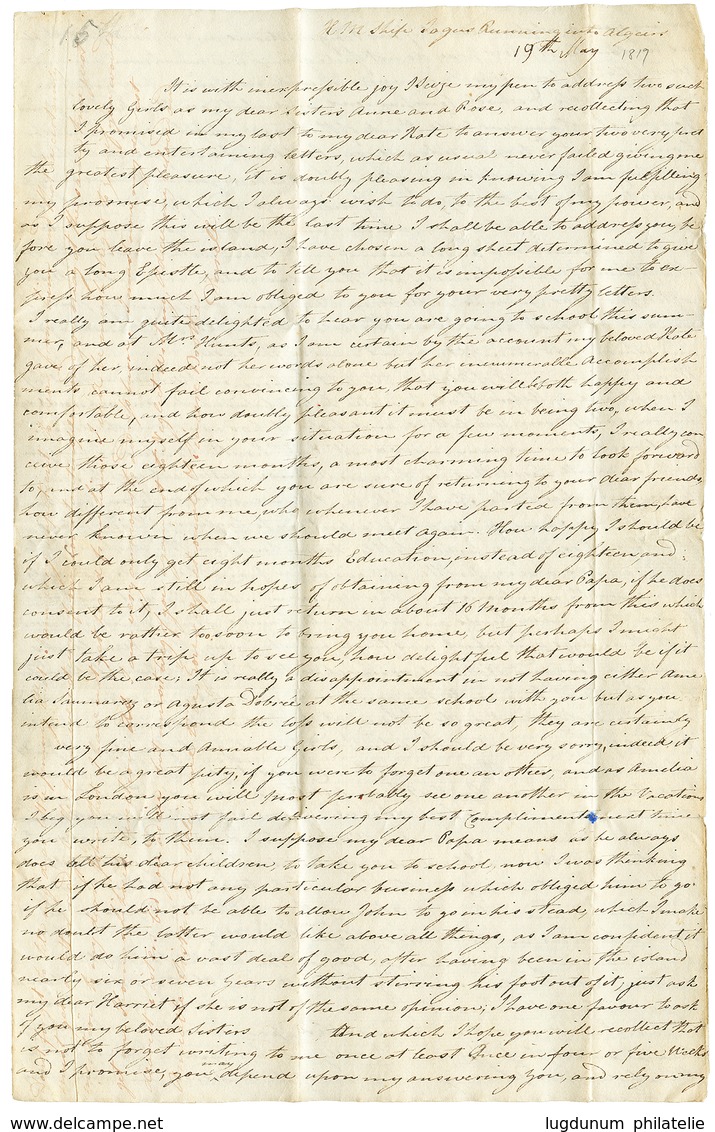 H M Ship Tagus Running into Algiers
19th May 1819
It is with inexpressible joy I seize my pen to address two such
lovely Girls as my dear Sisters Anne and Rose, and recollecting that
I promised in my last to my dear Kate to answer your two very pret
ty and entertaining letters, which as usual never failed giving me
the greatest pleasure, it is doubly pleasing in knowing I am fulfilling
my promise, which I always wish to do, to the best of my power, and
as I suppose this will be the last time I shall be able to address you, be
fore you leave the island, I have chosen a long sheet determined to give
you a long Epistle, and to tell you that it is impossible for me to ex-
press how much I am obliged to you for your very pretty letters.
I really am quite delighted to hear you are going to school this sum-
mer, and at Mrs Hunts, as I am certain by the account my beloved Kate
gave of her, indeed not her words alone but her innumerable accomplish
ments cannot fail convincing to you, that you will both happy and
comfortable, and how doubly pleasant it must be in being two, when I
imagine myself in your situation for a few moments, I really con
ceive those eighteen months, a most charming time to look forward
to, and at the end of which you are sure of returning to your dear friends,
how different from me, who whenever I have parted from them, have
never known when we should meet again. How happy I should be
if I could only get eight months Education, instead of eighteen and
which I am still in hopes of obtaining from my dear Papa, if he does
consent to it, I shall just return in about 16 Months from this which
would be rather too soon to bring you home, but perhaps I might
just take a trip up to see you, how delightful that would be if it
could be the case; It is really a disappointment in not having either Ame
lia Saumarez or Agusta Dobrée at the same school with you but as you
intend to correspond the loss will not be so great, they are certainly
very fine and Amiable Girls, and I should be very sorry, indeed it
would be a great pity, if you were to forget one an other, and as Amelia
is in London you will most probably see one another in the Vacations
I beg you will not fail delivering my best Compliments next time
you write, to them. I suppose my dear Papa means as he always
does all his dear children, to take you to school, now I was thinking
that if he had not any particular business which obliged him to go
if he should not be able to allow John to go in his stead, which I make
no doubt the latter would like above all things, as I am confident it
would do him a vast deal of good, after having been in the island
nearly six or seven Years without stirring his foot out of it, just ask
my dear Harriet if she is not of the same opinion; I have one favour to ask
of you my beloved Sisters and which I hope you will recollect that
is not to forget writing to me once at least Once in four or five Weeks
and I promise, you may depend upon my answering you, and rely on my
lugdunum philatelie